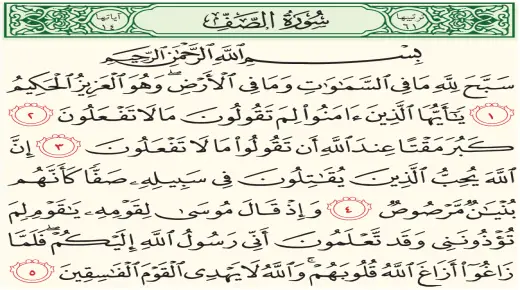 ترتيبها ٦١ سُورَةُ الصَّفِّ آياتها ١٤
بِسْمِ ٱللَّهِ ٱلرَّحْمَٰنِ ٱلرَّحِيمِ
سَبَّحَ لِلَّهِ مَا فِي ٱلسَّمَٰوَٰتِ وَمَا فِي ٱلْأَرْضِۖ وَهُوَ ٱلْعَزِيزُ ٱلْحَكِيمُ
١ يَٰٓأَيُّهَا ٱلَّذِينَ ءَامَنُوا۟ لِمَ تَقُولُونَ مَا لَا تَفْعَلُونَ ٢
كَبُرَ مَقْتًا عِندَ ٱللَّهِ أَن تَقُولُوا۟ مَا لَا تَفْعَلُونَ ٣ إِنَّ
ٱللَّهَ يُحِبُّ ٱلَّذِينَ يُقَٰتِلُونَ فِي سَبِيلِهِۦ صَفًّا كَأَنَّهُم
بُنْيَٰنٌ مَّرْصُوصٌ ٤ وَإِذْ قَالَ مُوسَىٰ لِقَوْمِهِۦ يَٰقَوْمِ لِمَ
تُؤْذُونَنِي وَقَد تَّعْلَمُونَ أَنِّي رَسُولُ ٱللَّهِ إِلَيْكُمْۖ فَلَمَّا
زَاغُوٓا۟ أَزَاغَ ٱللَّهُ قُلُوبَهُمْۚ وَٱللَّهُ لَا يَهْدِي ٱلْقَوْمَ ٱلْفَٰسِقِينَ ٥